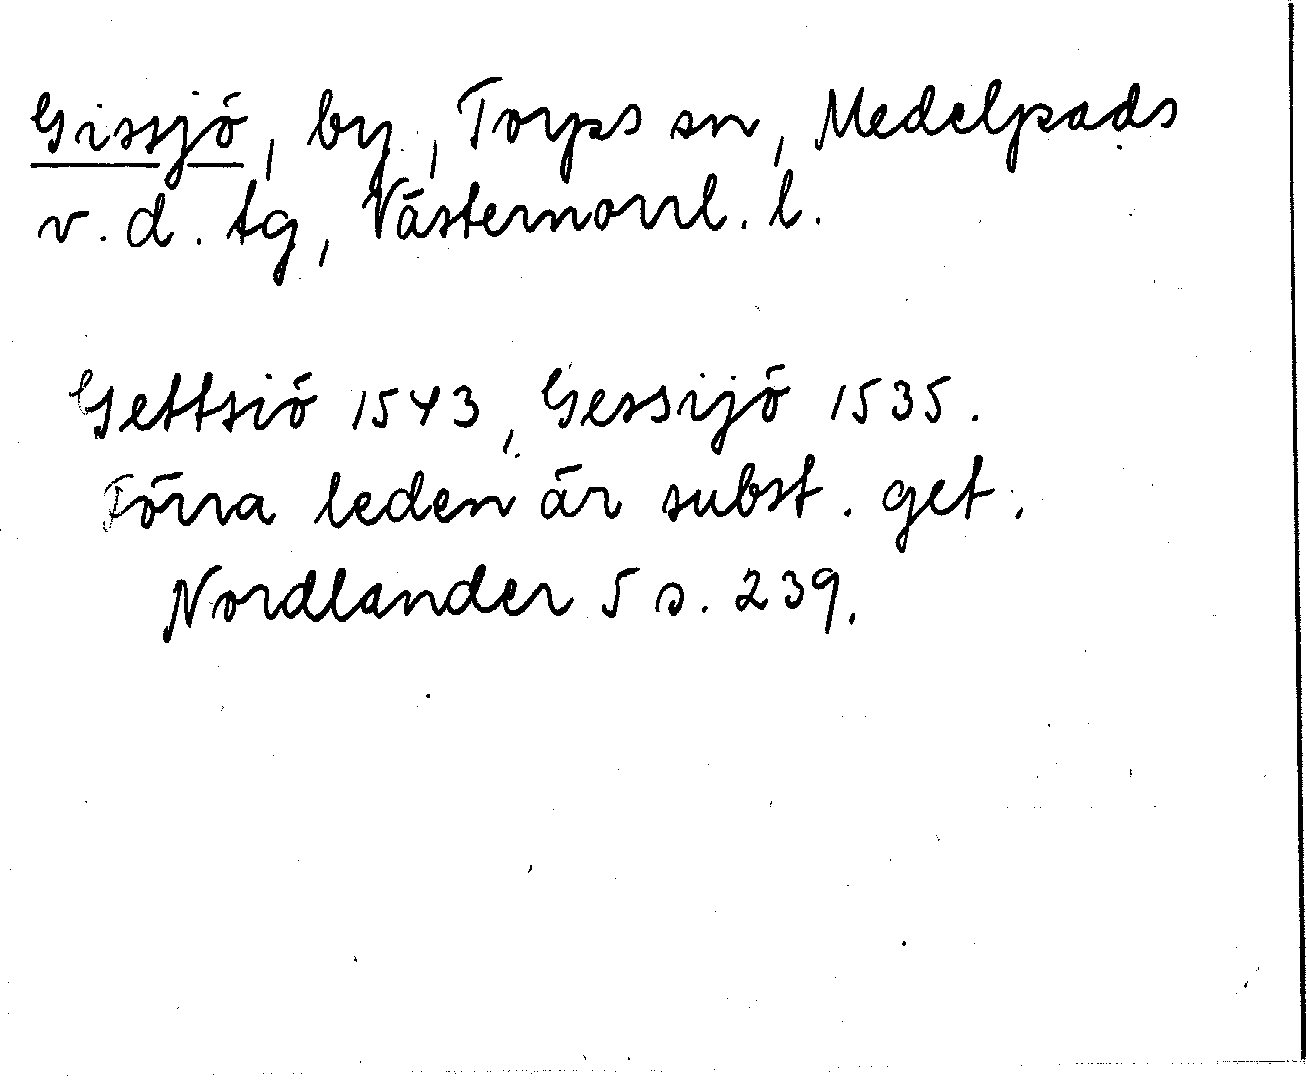 Gissjö, by, Torps sn, Medelpads
v. d. tg, Västernorrl. l.
Gettsiö 1543, Gessijö 1535.
Förra leden är subst. get.
Nordlander 5 s. 239.